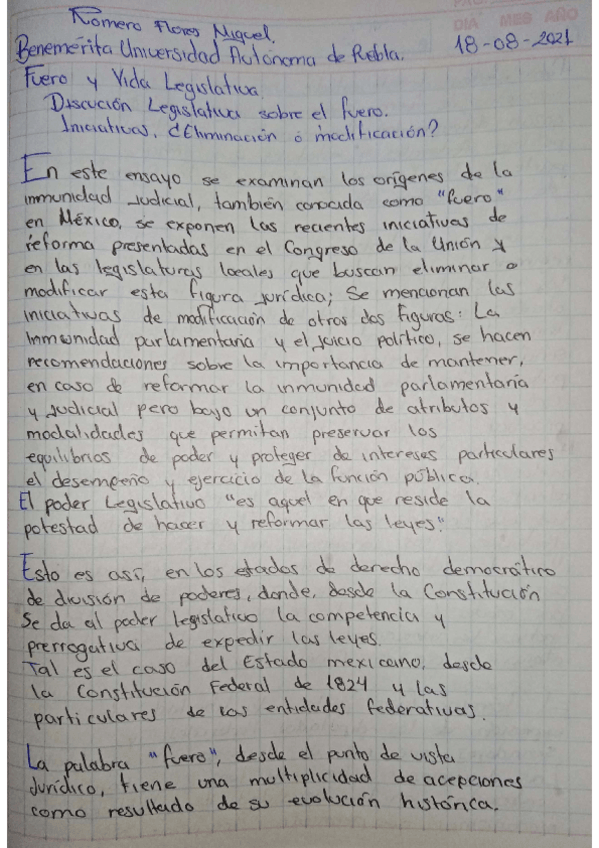 DIA MES AÑO
Romero Flores Miguel.
Benemérita Universidad Autónoma de Puebla. 18-08-2021
Fuero y Vida Legislativa.
Discución Legislativa sobre el fuero.
Iniciativas, ¿Eliminación o modificación?
En este ensayo se examinan los orígenes de la
inmunidad Judicial, también conocida como "fuero"
en México, se exponen las recientes iniciativas de
reforma presentadas en el Congreso de la Unión y
en las legislaturas locales que buscan eliminar o
modificar esta figura jurídica; Se mencionan las
iniciativas de modificación de otras dos figuras: La
inmunidad parlamentaria y el juicio político, se hacen
recomendaciones sobre la importancia de mantener,
en caso de reformar la inmunidad parlamentaria
y judicial pero bajo un conjunto de atributos y
modalidades que permitan preservar los
equilibrios de poder y proteger de intereses particulares
el desempeño y ejercicio de la función pública.
El poder Legislativo "es aquel en que reside la
potestad de hacer y reformar las leyes."
Esto es así, en los estados de derecho democrático
de división de poderes, donde, desde la Constitución
Se da al poder legislativo la competencia y
prerrogativa de expedir las leyes.
Tal es el caso del Estado mexicano, desde
la Constitución Federal de 1824 y las
particulares de las entidades federativas.
La palabra "fuero", desde el punto de vista
Jurídico, tiene una multiplicidad de acepciones
como resultado de su evolución histórica.